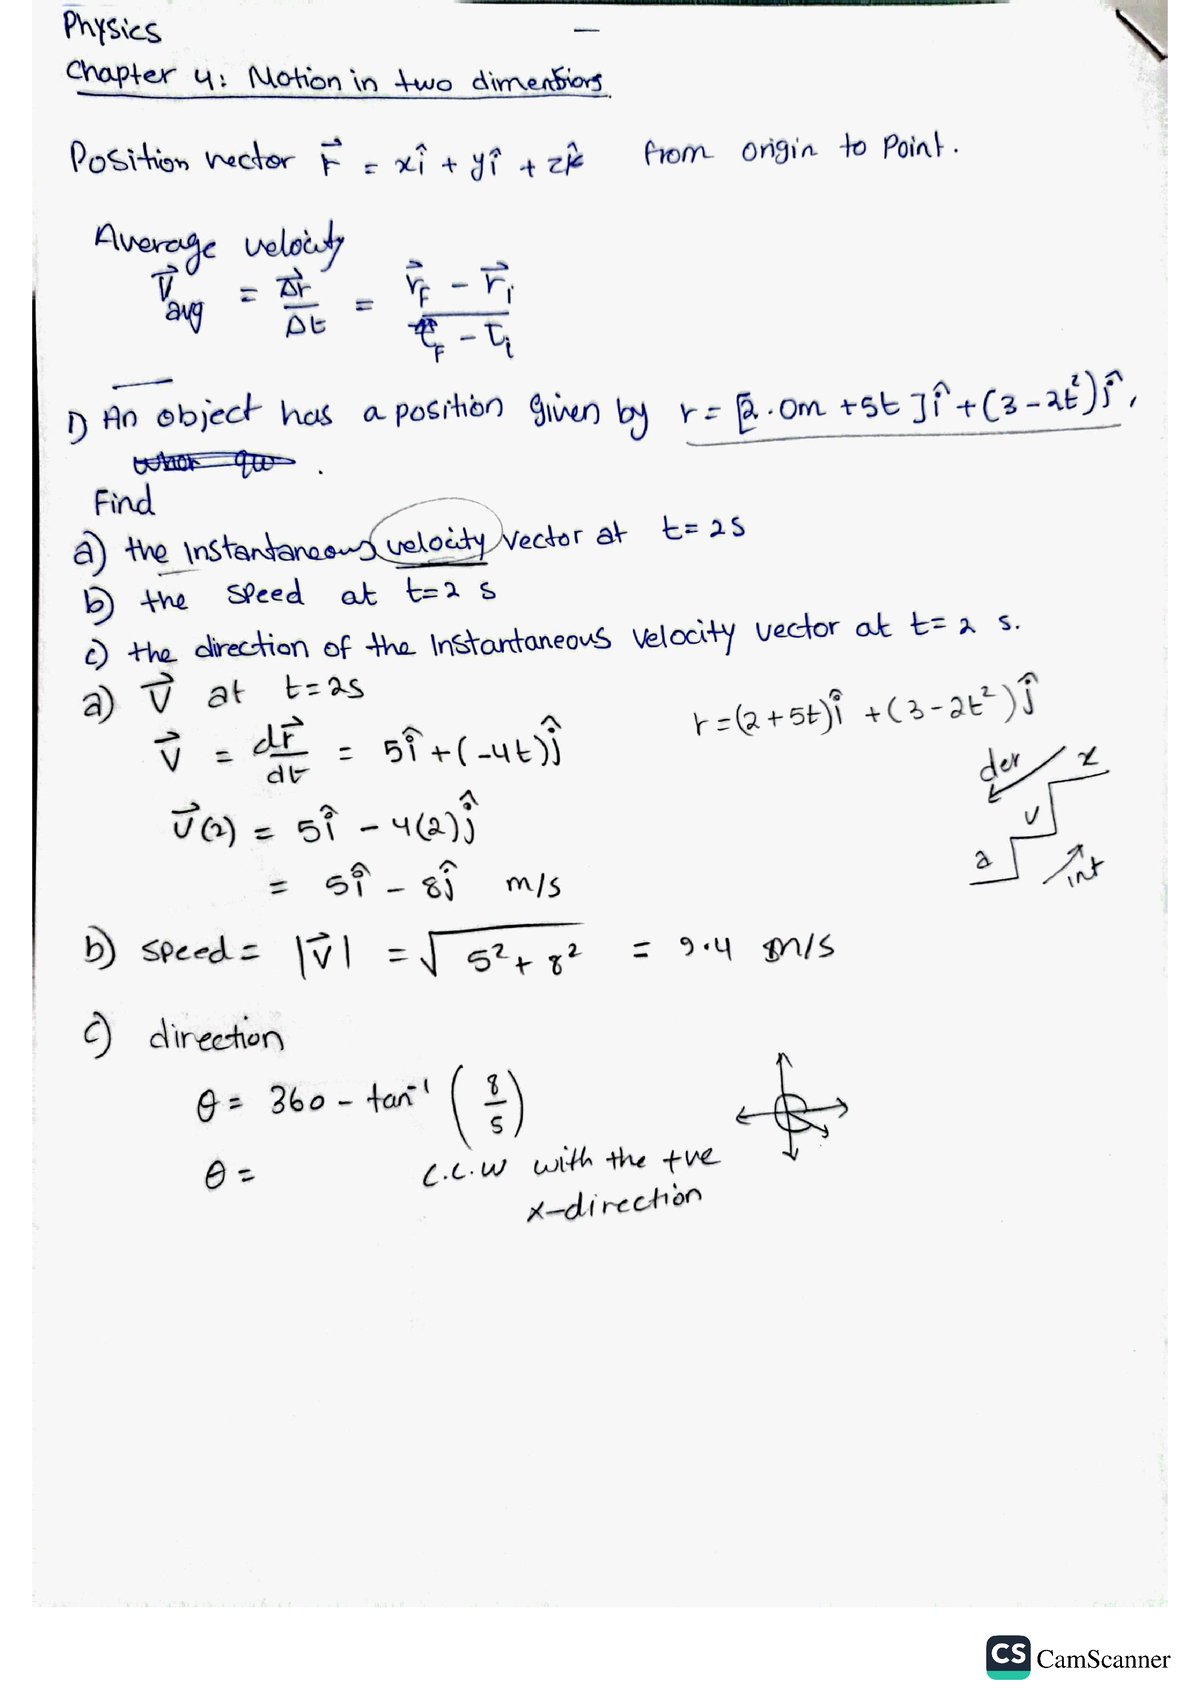 Physics
Chapter 4: Motion in two dimensions
Position vector r⃗ = xî + yî + zk̂ from origin to Point.
Average velocity
V⃗avg = Δr⃗/Δt = (r⃗F - r⃗i)/(tF - ti)
1) An object has a position given by r = [2.0m + 5t]î + (3 - 2t²)ĵ,
Find
a) the Instantaneous velocity vector at t = 2s
b) the speed at t = 2 s
c) the direction of the Instantaneous velocity vector at t = 2 s.
a) V⃗ at t = 2s
r = (2 + 5t)î + (3 - 2t²)ĵ
V⃗ = dr⃗/dt = 5î + (-4t)ĵ
der x
V⃗(2) = 5î - 4(2)ĵ
v
a int
= 5î - 8ĵ m/s
b) speed = |V⃗| = √(5² + 8²) = 9.4 m/s
c) direction
θ = 360 - tan⁻¹(8/5)
θ = C.C.W with the +ve
x-direction
CS CamScanner